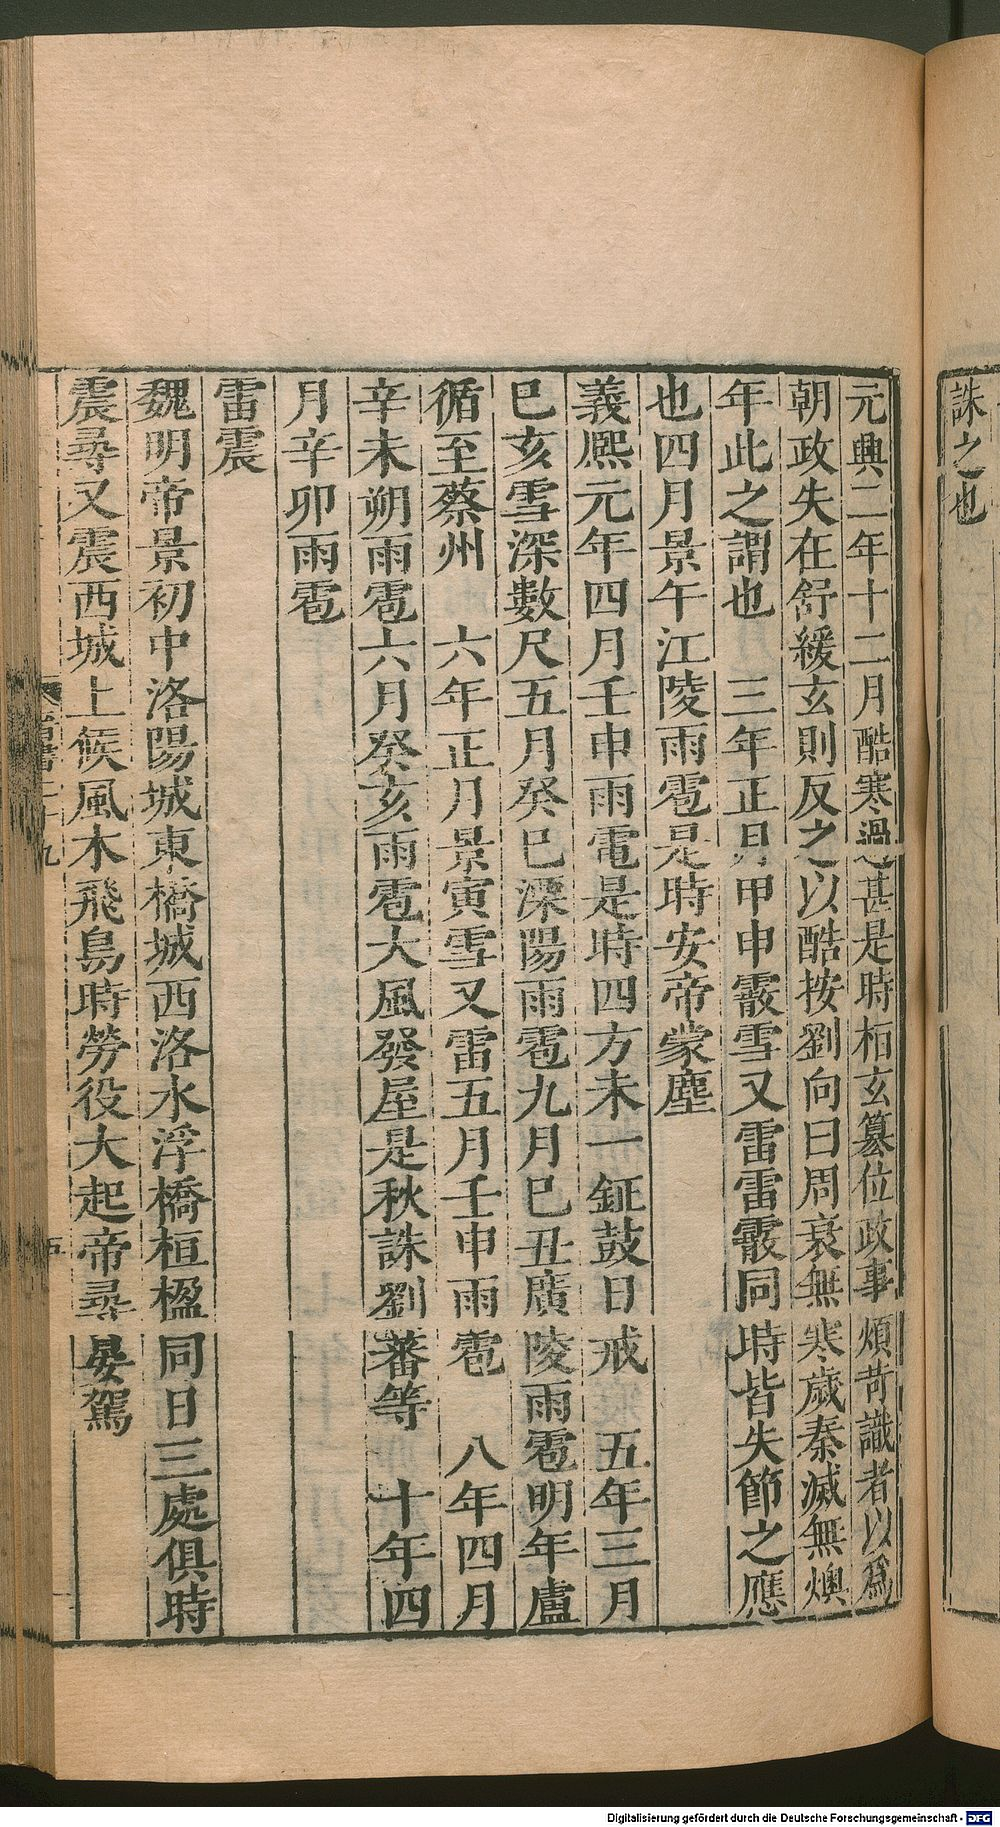 誅之也
元興二年十二月酷寒過甚是時桓玄篡位政事煩苛識者以爲
朝政失在舒緩玄則反之以酷按劉向曰周衰無寒歲秦滅無燠
年此之謂也 三年正月甲申霰雪又雷雷霰同時皆失節之應
也四月景午江陵雨雹是時安帝蒙塵
義熙元年四月壬申雨雹是時四方未一鉦鼓日戒 五年三月
巳亥雪深數尺五月癸巳溧陽雨雹九月巳丑廣陵雨雹明年盧
循至蔡州 六年正月景寅雪又雷五月壬申雨雹 八年四月
辛未朔雨雹六月癸亥雨雹大風發屋是秋誅劉蕃等 十年四
月辛卯雨雹
雷震
魏明帝景初中洛陽城東橋城西洛水浮橋桓楹同日三處俱時
震尋又震西城上候風木飛鳥時勞役大起帝尋晏駕
Digitalisierung gefördert durch die Deutsche Forschungsgemeinschaft - DFG